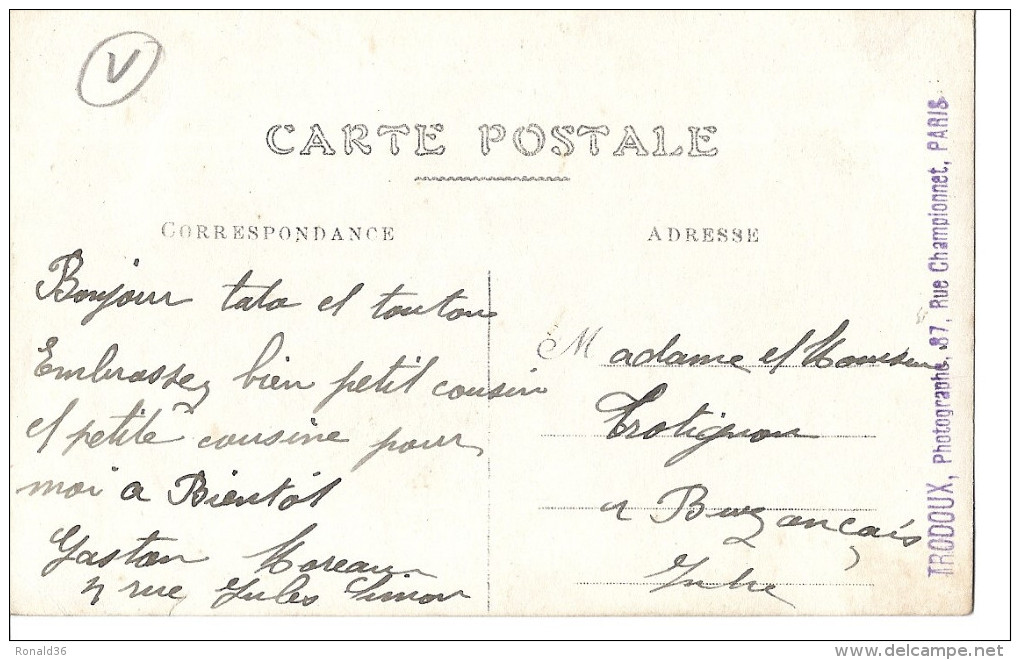 V
CARTE POSTALE
CORRESPONDANCE
Bonjour tata et tonton
Embrassez bien petit cousin
et petite cousine pour
moi a Bientôt
Gaston Moreau
4 rue Jules Simon
ADRESSE
Madame et Monsieur
Trotignon
a Buzançais
Indre
TRODOUX, Photographe, 87, Rue Championnet, PARIS
Ronald36
www.delcampe.net